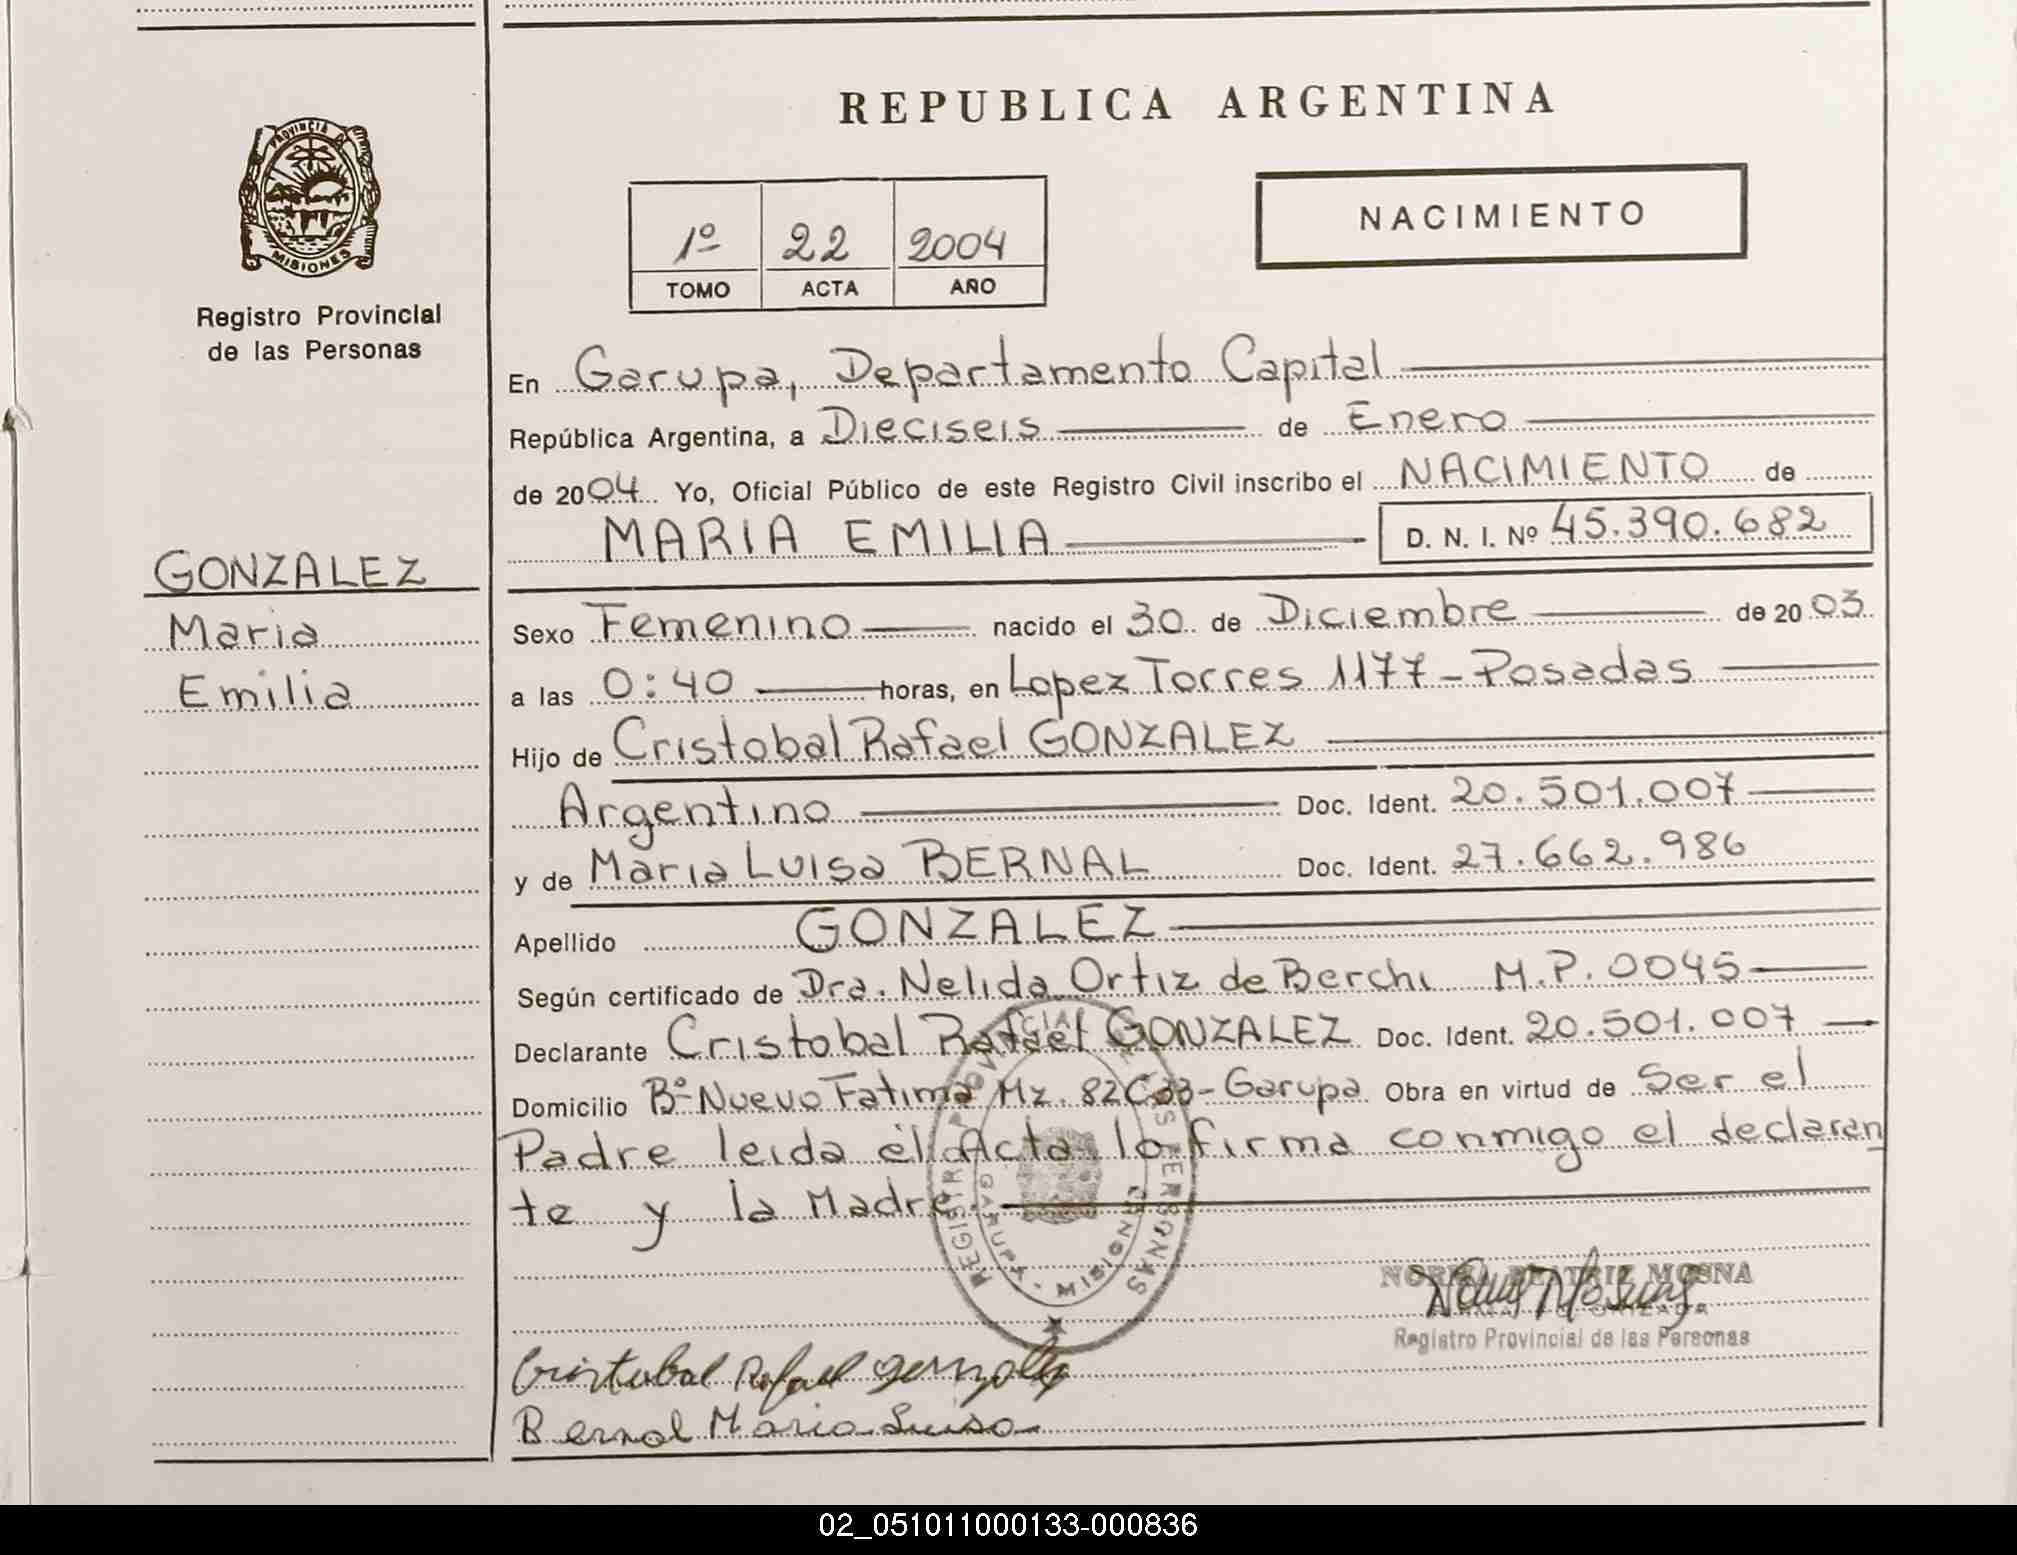 PROVINCIA DE
MISIONES
Registro Provincial
de las Personas
GONZALEZ
Maria
Emilia
REPUBLICA ARGENTINA
1º 22 2004
TOMO ACTA AÑO
NACIMIENTO
En Garupa, Departamento Capital
República Argentina, a Dieciseis de Enero
de 2004 Yo, Oficial Público de este Registro Civil inscribo el NACIMIENTO de
MARIA EMILIA D. N. I. Nº 45.390.682
Sexo Femenino nacido el 30 de Diciembre de 2003
a las 0:40 horas, en Lopez Torres 1177 - Posadas
Hijo de Cristobal Rafael GONZALEZ
Argentino Doc. Ident. 20.501.007
y de Maria Luisa BERNAL Doc. Ident. 27.662.986
Apellido GONZALEZ
Según certificado de Dra. Nelida Ortiz de Berchi M.P. 0045
Declarante Cristobal Rafael GONZALEZ Doc. Ident. 20.501.007
Domicilio Bº Nuevo Fatima Mz. 82 - Garupa Obra en virtud de Ser el
Padre leida el Acta lo firma conmigo el declaran
te y la Madre
REGISTRO PROVINCIAL DE LAS PERSONAS
GARUPA - MISIONES
NORMA BEATRIZ MOSNA
Registro Provincial de las Personas
Cristobal Rafael Gonzalez
Bernal Maria Luisa
02_051011000133-000836